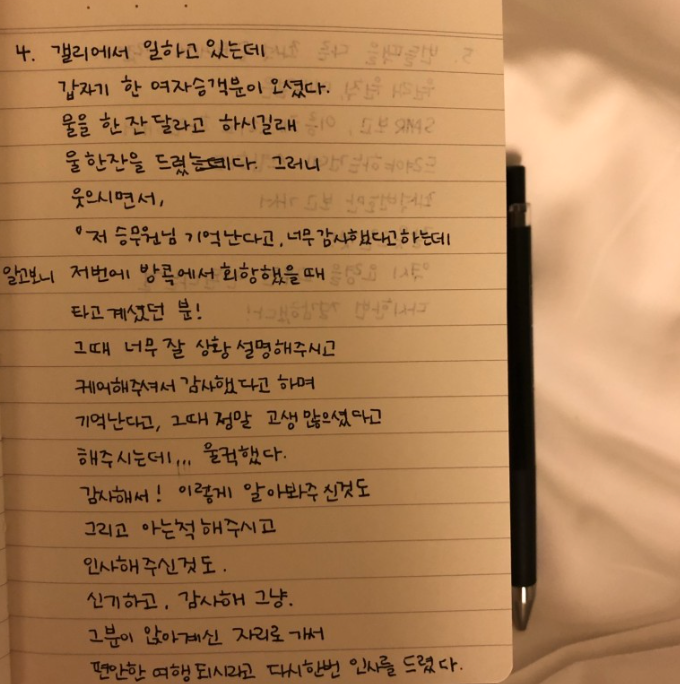 4. 갤리에서 일하고 있는데
갑자기 한 여자승객분이 오셨다.
물을 한 잔 달라고 하시길래
물 한잔을 드렸다. 그러니
웃으시면서,
"저 승무원님 기억난다고, 너무 감사했다고하는데
알고보니 저번에 방콕에서 회항했을 때
타고 계셨던 분!
그때 너무 잘 상황 설명해주시고
케어해주셔서 감사했다고 하며
기억난다고, 그때 정말 고생 많으셨다고
해주시는데,,, 울컥했다.
감사해서! 이렇게 알아봐주신것도
그리고 아는척 해주시고
인사해주신것도.
신기하고, 감사해 그냥.
그분이 앉아계신 자리로 가서
편안한 여행 되시라고 다시한번 인사를 드렸다.